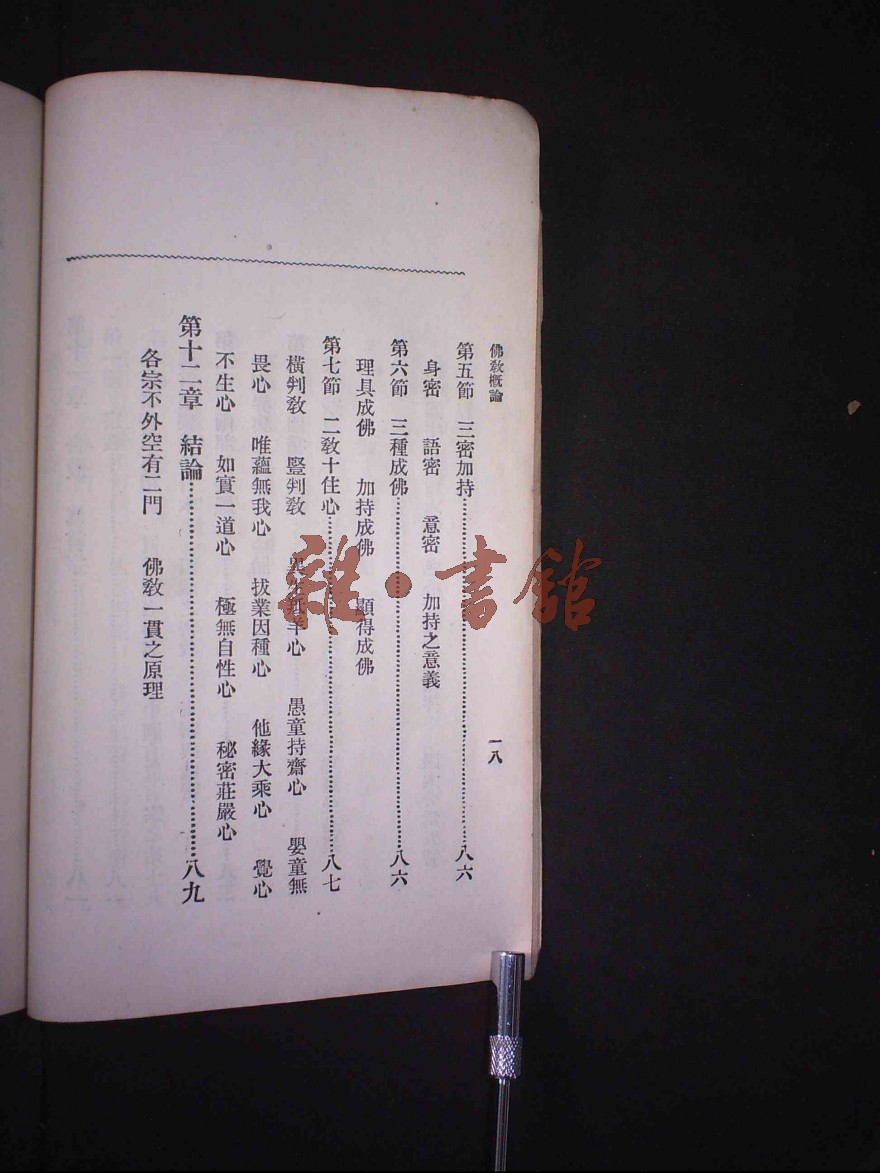 佛教概論
一八
第五節　三密加持……八六
身密　語密　意密　加持之意義
第六節　三種成佛……八六
理具成佛　加持成佛　顯得成佛
第七節　二教十住心……八七
橫判教　豎判教　異生羝羊心　愚童持齋心　嬰童無
畏心　唯蘊無我心　拔業因種心　他緣大乘心　覺心
不生心　如實一道心　極無自性心　秘密莊嚴心
第十二章　結論……八九
各宗不外空有二門　佛教一貫之原理
雜·書館